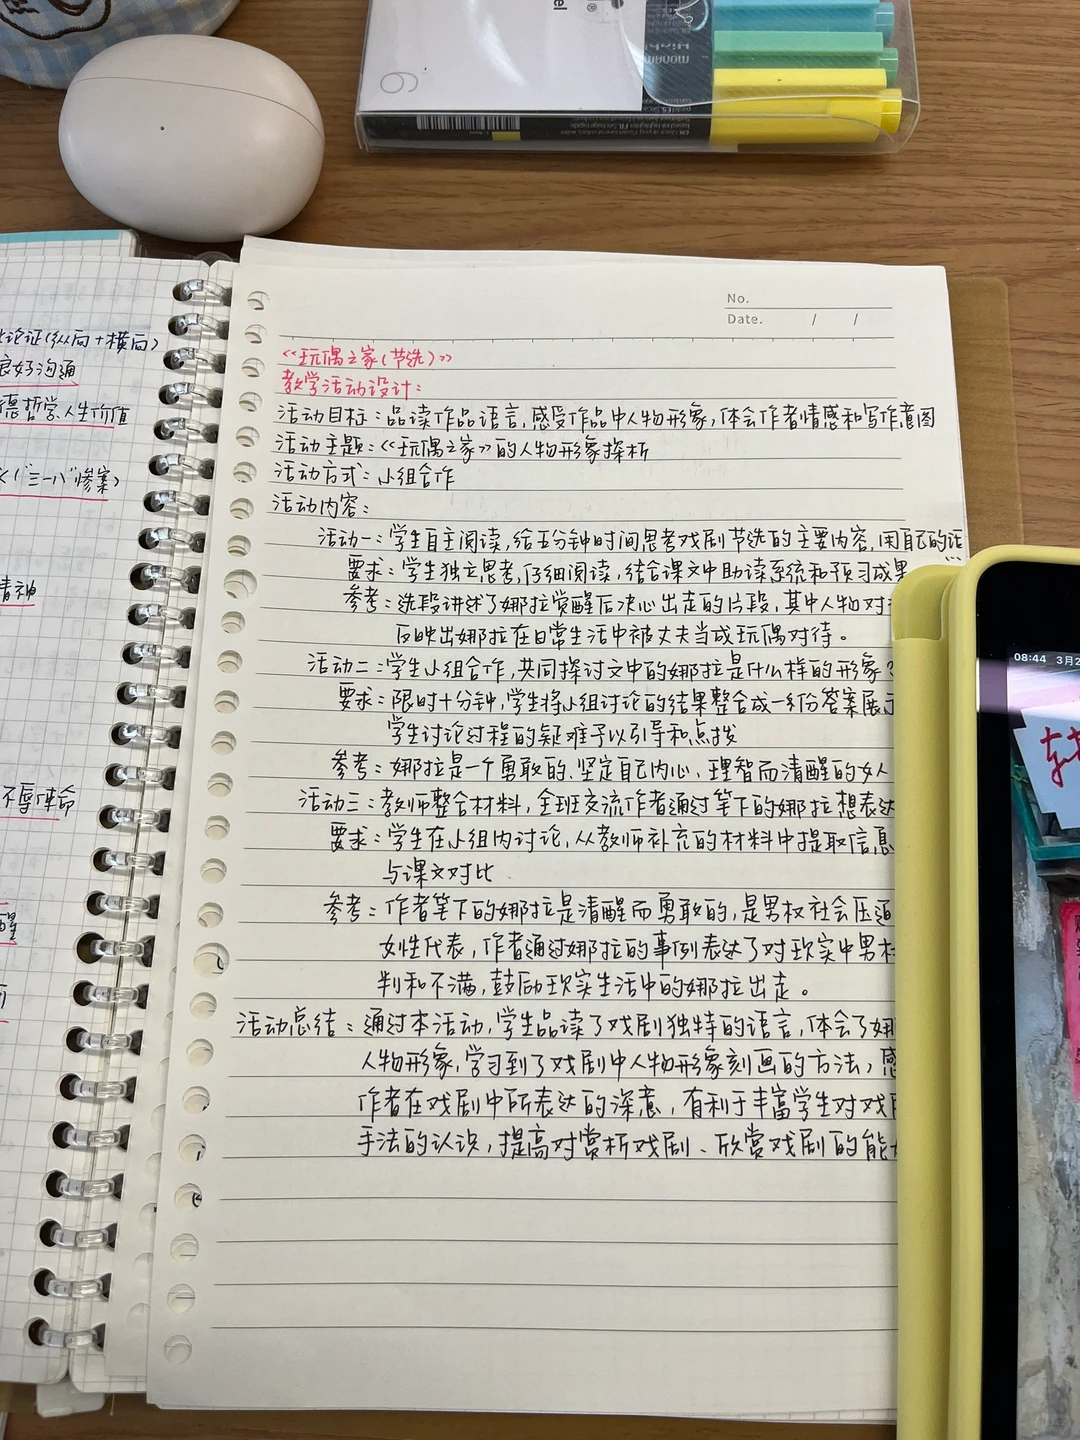 论证(纵向+横向)
良好沟通
德哲学人生价值
("三一八"惨案)
精神
不辱使命
醒
No.
Date. / /
《玩偶之家(节选)》
教学活动设计:
活动目标:品读作品语言,感受作品中人物形象,体会作者情感和写作意图
活动主题:《玩偶之家》的人物形象探析
活动方式:小组合作
活动内容:
活动一:学生自主阅读,给五分钟时间思考戏剧节选的主要内容,用自己的话
要求:学生独立思考,仔细阅读,结合课文中助读系统和预习成果
参考:选段讲述了娜拉觉醒后决心出走的片段,其中人物对
反映出娜拉在日常生活中被丈夫当成玩偶对待。
活动二:学生小组合作,共同探讨文中的娜拉是什么样的形象?
要求:限时十分钟,学生将小组讨论的结果整合成一份答案展示
学生讨论过程的疑难予以引导和点拨
参考:娜拉是一个勇敢的、坚定自己内心、理智而清醒的女人
活动三:教师整合材料,全班交流作者通过笔下的娜拉想表达
要求:学生在小组内讨论,从教师补充的材料中提取信息
与课文对比
参考:作者笔下的娜拉是清醒而勇敢的,是男权社会压迫
女性代表,作者通过娜拉的事例表达了对现实中男权
判和不满,鼓励现实生活中的娜拉出走。
活动总结:通过本活动,学生品读了戏剧独特的语言,体会了娜
人物形象,学习到了戏剧中人物形象刻画的方法,感
作者在戏剧中所表达的深意,有利于丰富学生对戏剧
手法的认识,提高对赏析戏剧、欣赏戏剧的能力
08:44 3月2